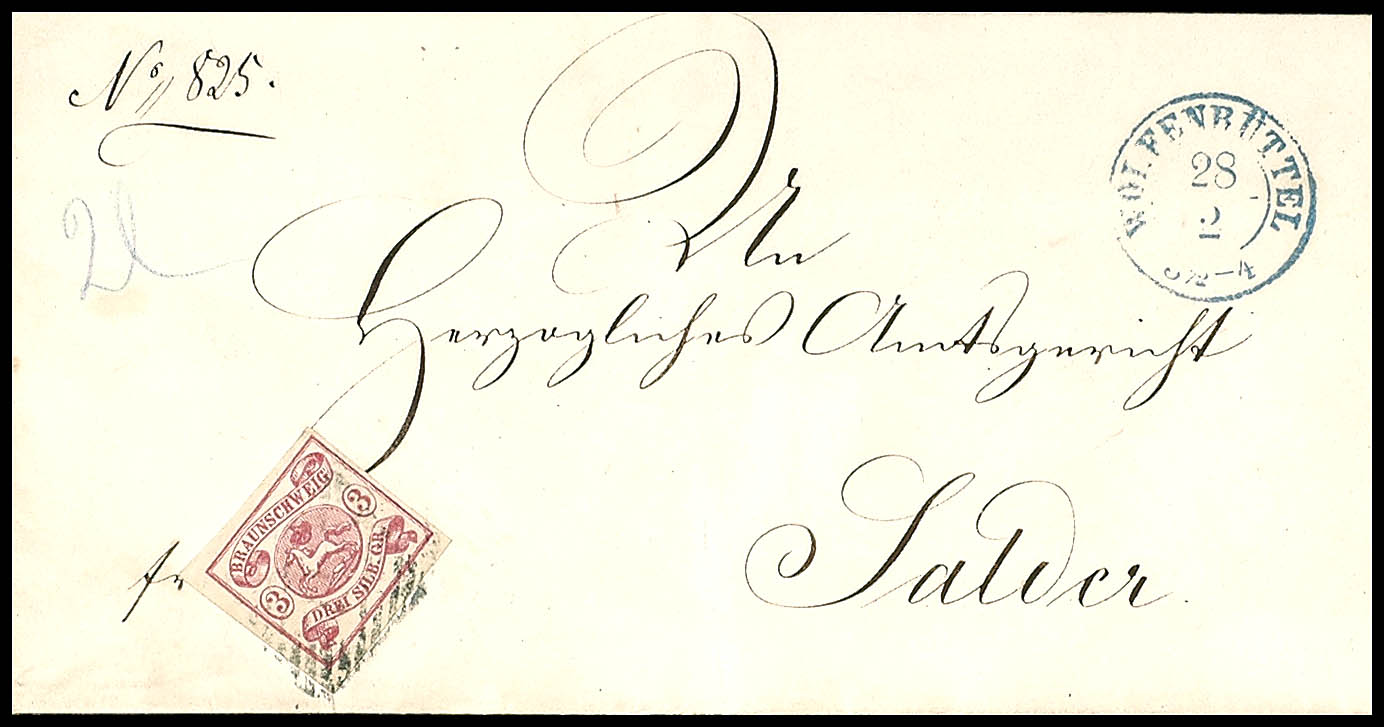 No 825.
WOLFENBÜTTEL
28
2
3½-4
An
Herzogliches Amtsgericht
Salder
fr
BRAUNSCHWEIG
3
3
DREI SILB. GR.